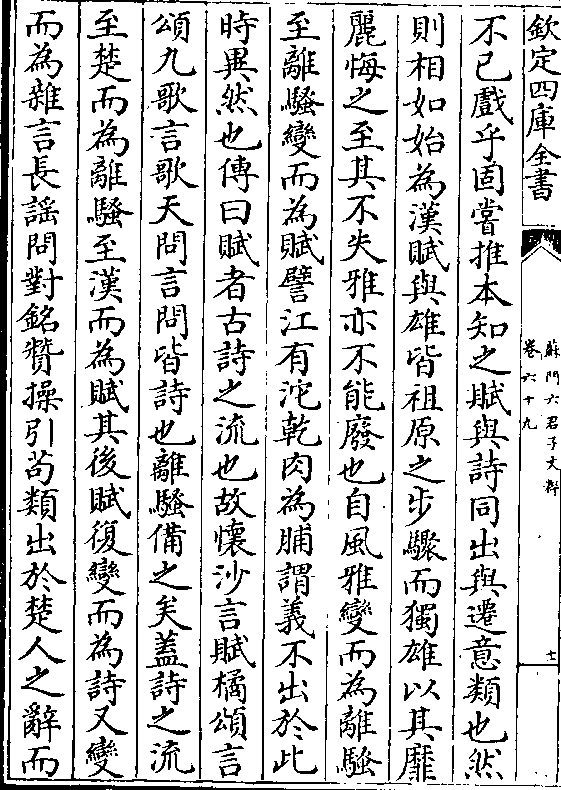 欽定四庫全書
蘇門六君子文粹
卷六十九
十一
不已戲乎固嘗推本知之賦與詩同出與遷意類也然
則相如始為漢賦與雄皆祖原之步驟而獨雄以其靡
麗悔之至其不失雅亦不能廢也自風雅變而為離騷
至離騷變而為賦譬江有沱乾肉為脯謂義不出於此
時異然也傳曰賦者古詩之流也故懷沙言賦橘頌言
頌九歌言歌天問言問皆詩也離騷備之矣蓋詩之流
至楚而為離騷至漢而為賦其後賦復變而為詩又變
而為雜言長謡問對銘贊操引苟類出於楚人之辭而